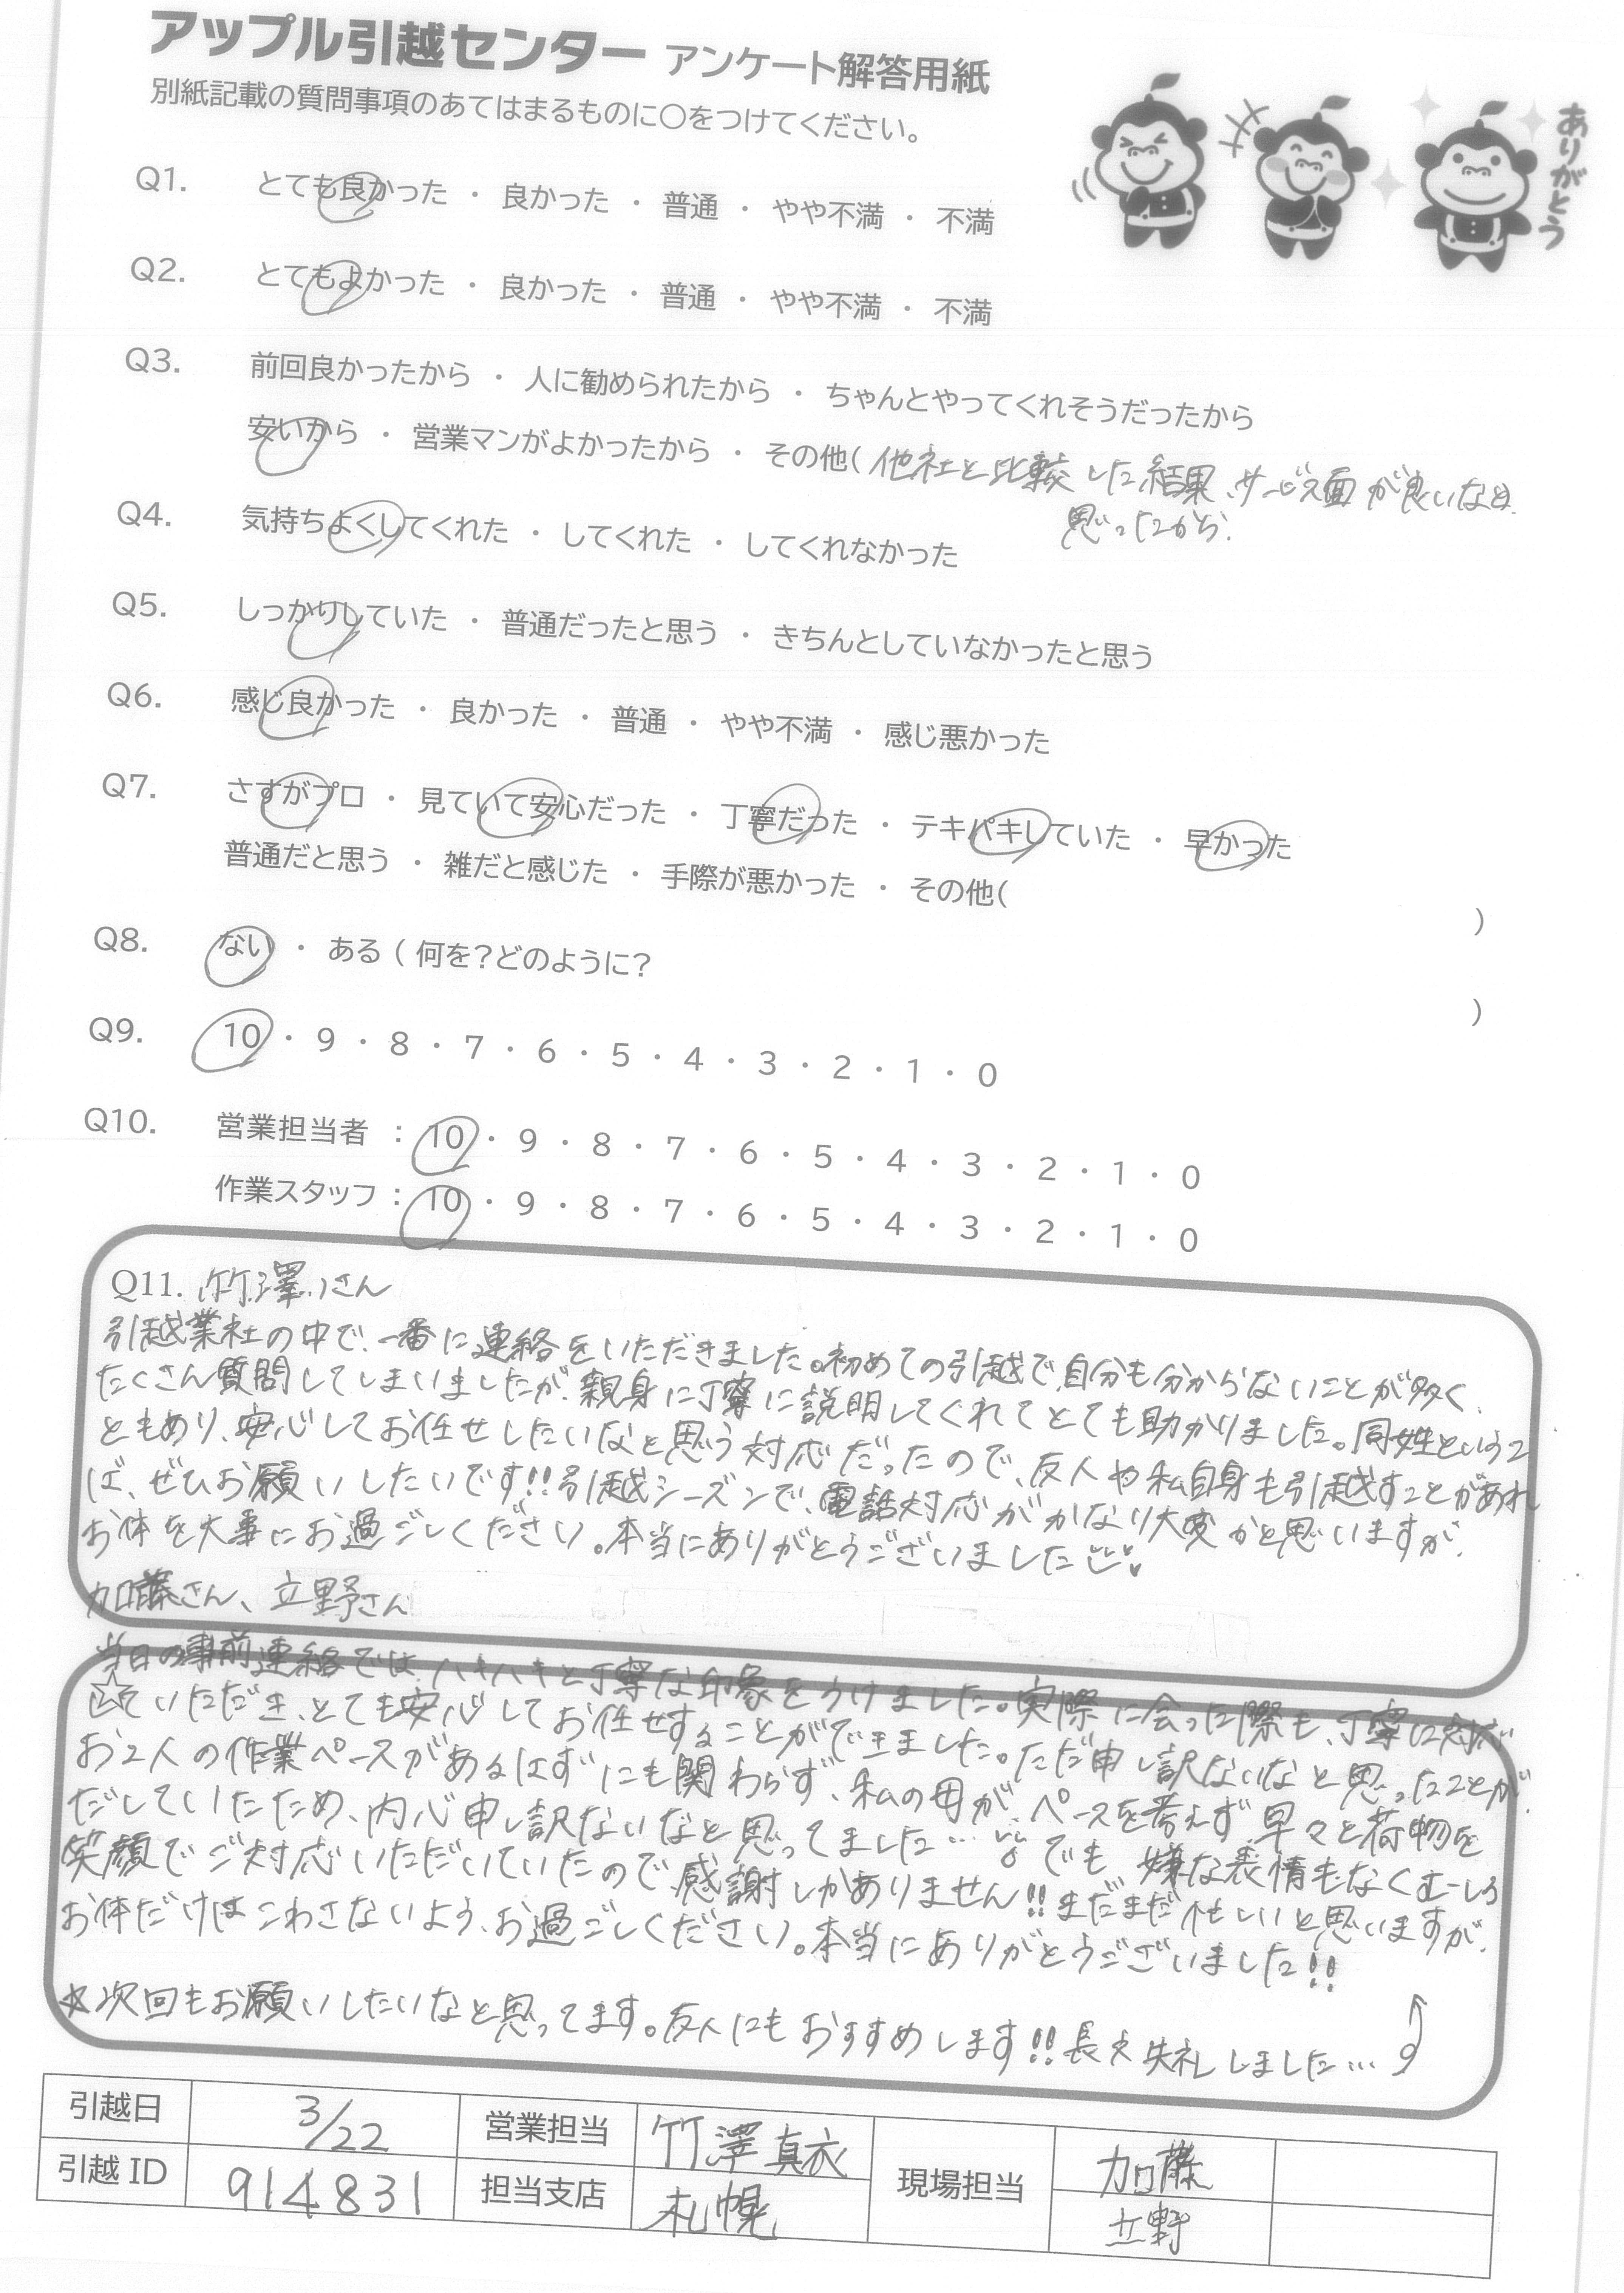 アップル引越センター アンケート解答用紙
別紙記載の質問事項のあてはまるものに〇をつけてください。
ありがとう
Q1. とても良かった ・ 良かった ・ 普通 ・ やや不満 ・ 不満
Q2. とてもよかった ・ 良かった ・ 普通 ・ やや不満 ・ 不満
Q3. 前回良かったから ・ 人に勧められたから ・ ちゃんとやってくれそうだったから
安いから ・ 営業マンがよかったから ・ その他( 他社と比較した結果、サービス面が良いなと
思ったから.
Q4. 気持ちよくしてくれた ・ してくれた ・ してくれなかった
Q5. しっかりしていた ・ 普通だったと思う ・ きちんとしていなかったと思う
Q6. 感じ良かった ・ 良かった ・ 普通 ・ やや不満 ・ 感じ悪かった
Q7. さすがプロ ・ 見ていて安心だった ・ 丁寧だった ・ テキパキしていた ・ 早かった
普通だと思う ・ 雑だと感じた ・ 手際が悪かった ・ その他( )
Q8. ない ・ ある ( 何を?どのように? )
Q9. 10 ・ 9 ・ 8 ・ 7 ・ 6 ・ 5 ・ 4 ・ 3 ・ 2 ・ 1 ・ 0
Q10. 営業担当者 : 10 ・ 9 ・ 8 ・ 7 ・ 6 ・ 5 ・ 4 ・ 3 ・ 2 ・ 1 ・ 0
作業スタッフ : 10 ・ 9 ・ 8 ・ 7 ・ 6 ・ 5 ・ 4 ・ 3 ・ 2 ・ 1 ・ 0
Q11. 竹澤さん
引越業社の中で、一番に連絡をいただきました。初めての引越で、自分も分からないことが多く、
たくさん質問してしまいましたが、親身に丁寧に説明してくれてとても助かりました。同姓というこ
ともあり、安心してお任せしたいなと思う対応だったので、友人や私自身も引越すことがあれ
ば、ぜひお願いしたいです!!引越シーズンで、電話対応がかなり大変かと思いますが、
お体を大事にお過ごしください。本当にありがとうございました
加藤さん、立野さん
当日の事前連絡では、ハキハキと丁寧な印象をうけました。実際に会った際も、丁寧に対応
していただき、とても安心してお任せすることができました。ただ申し訳ないなと思ったことが、
お2人の作業ペースがあるはずにも関わらず、私の母が、ペースを考えず早々と荷物を
だしていたため、内心申し訳ないなと思ってました… でも、嫌な表情もなくむしろ
笑顔でご対応いただいていたので、感謝しかありません!!まだまだ忙しいと思いますが、
お体だけはこわさないよう、お過ごしください。本当にありがとうございました!!
☆次回もお願いしたいなと思ってます。友人にもおすすめします!!長文失礼しました…
引越日 3/22 営業担当 竹澤真衣 現場担当 加藤
引越ID 914831 担当支店 札幌 立野